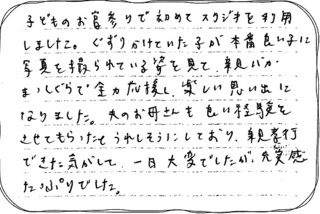 子どものお宮参りで初めてスタジオを利用
しました。ぐずりかけていた子が本番良い子に
写真を撮られている姿を見て、親バカ
まっしぐらで全力応援し、楽しい思い出に
なりました。夫のお母さんも良い経験を
させてもらったとうれしそうにしており、親孝行
できた気がして、一日大変でしたが、充実感
たっぷりでした。